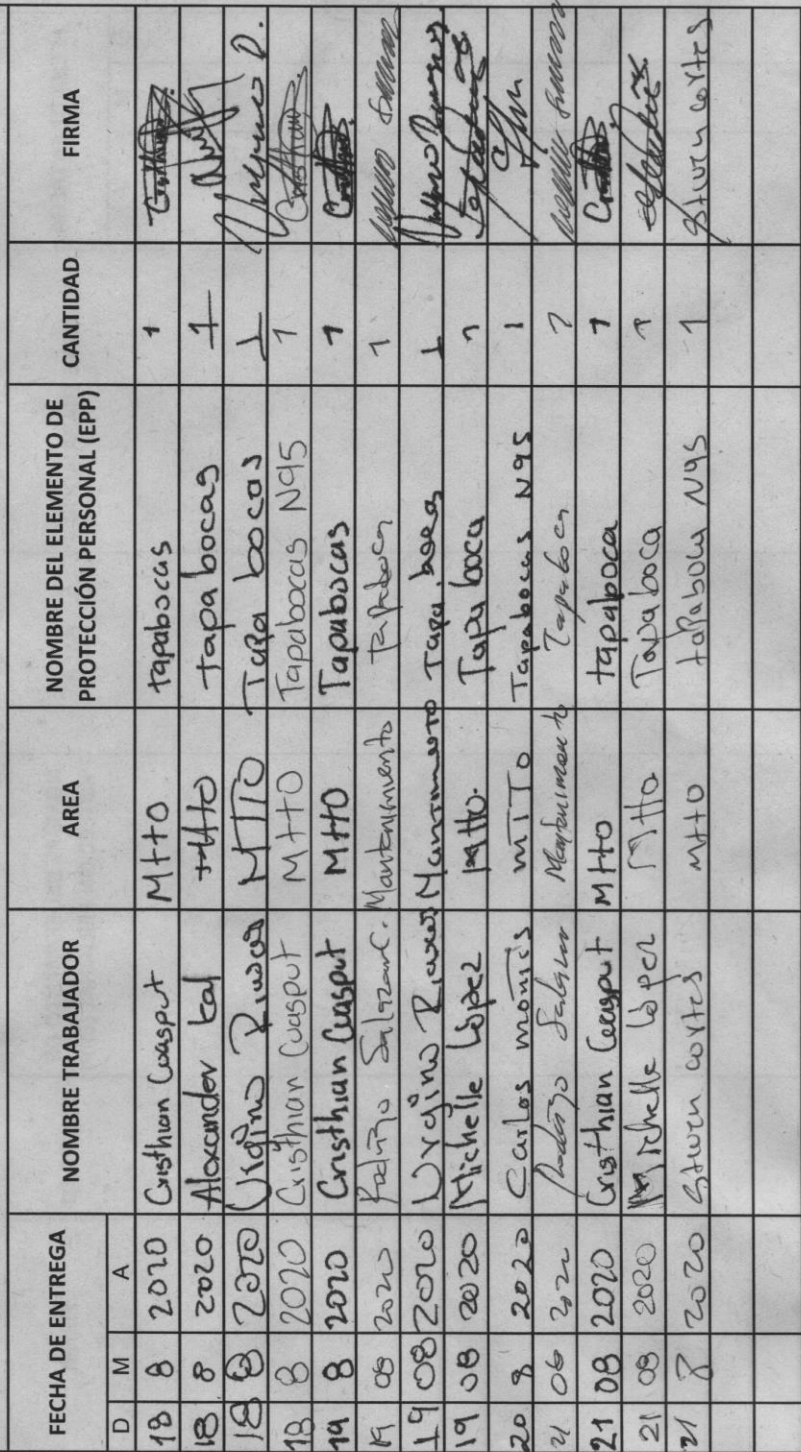 FECHA DE ENTREGA NOMBRE TRABAJADOR AREA NOMBRE DEL ELEMENTO DE PROTECCIÓN PERSONAL (EPP) CANTIDAD FIRMA
D M A
18 8 2020 Cristhian Cuasput Mtto tapabocas 1
18 8 2020 Alexander Mtto tapa bocas 1
18 8 2020 Virgino Riascos MTTO Tapa bocas 1 D.
18 8 2020 Cristhian Cuasput Mtto Tapabocas N95 1 Cristhian
19 8 2020 Cristhian Cuasput Mtto Tapabocas 1
19 08 2020 Rodrigo Salazar C. Mantenimiento tapaboca 1
19 08 2020 Virgino Riascos Mantenimiento Tapa bocas 1
19 08 2020 Michelle López Mtto. Tapa boca 1
20 8 2020 Carlos MTTO Tapabocas N95 1
21 2020 Rodrigo Salazar Mantenimiento Tapaboca
21 08 2020 Cristhian Cuasput Mtto tapaboca 1
21 08 2020 Michelle López Mtto Tapaboca 1
21 8 2020 Steven cortes Mtto tapaboca N95 1 Steven cortes